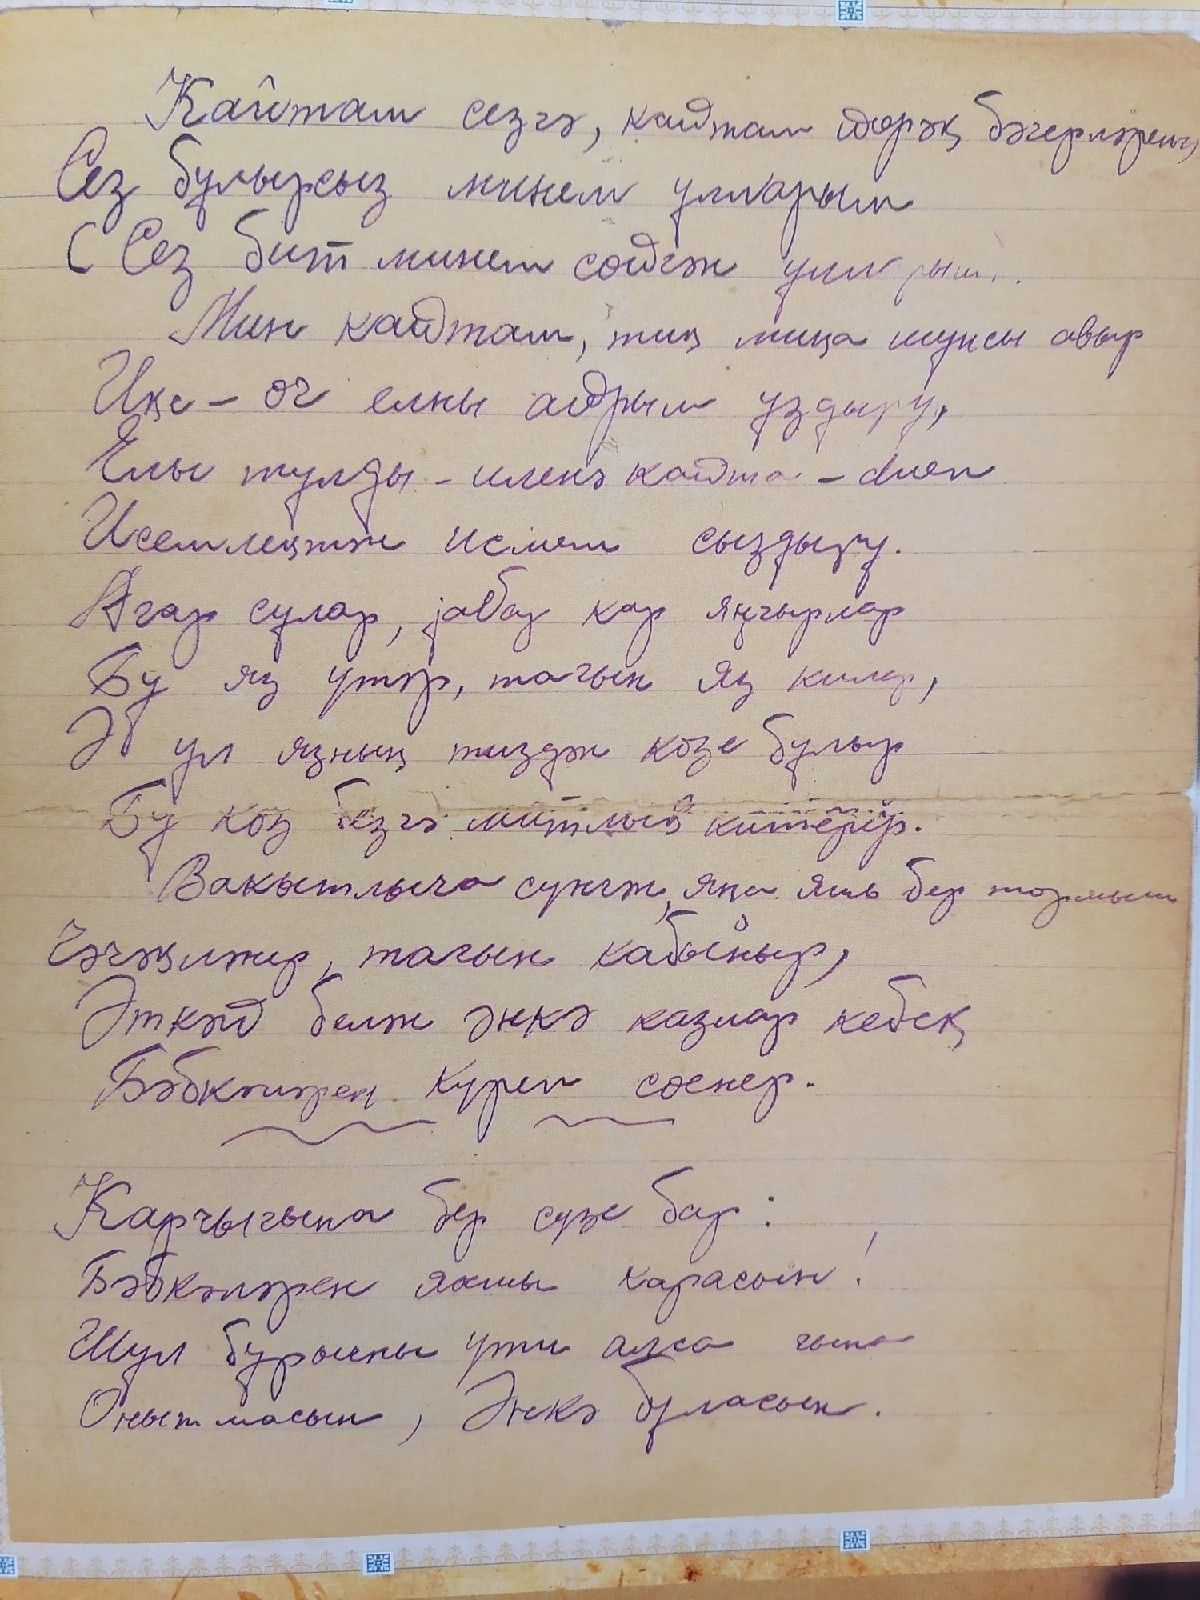 Кайтам сезгә, кайтам йөрәк бәгерләрем
Сез булырсыз минем уйларым
Сез бит минем сөйгән
Мин кайтам, тик миңа шунсы авыр
Ике – өч елны айрым уздыру,
Елы тулды – иленә кайта – диеп
Исемлектән исмем сыздыру.
Агар сулар, јавар кар яңгырлар
Бу яз үтәр, тагын яз килер,
Ә ул язның тиздән көзе булыр
Бу көз безгә шатлык китерер.
Вакытлыча сүнгән, яңа яшь бер тормыш
Чәчәкләнер, тагын кабыныр,
Әткәй белән әнкә казлар кебек
Бәбкәләрен күреп сөенер.
Карчыгыма бер сүзе бар:
Бәбкәләрен яхшы карасын!
Шул бурычны үти алса гына
Онытмасын, Әнкә буласын.